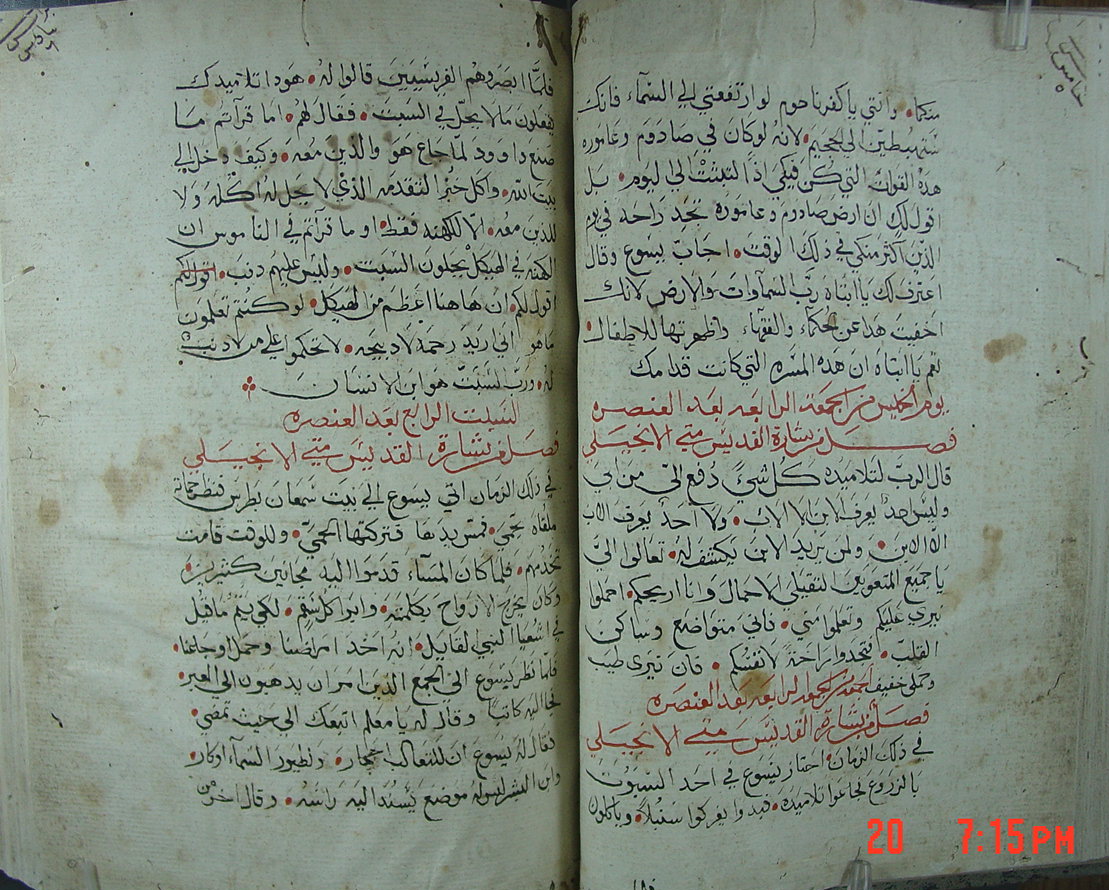 منكما • وانتي يا كفرناحوم لو ارتفعتي الي السمآء فانك
ستهبطين الي الجحيم • لانه لو كان في صادوم وعاموره
هذه القوات التي كن فيكي اذاً لتبثت الي اليوم • بل
اقول لك ان ارض صادوم وعاموره تجد راحه في يوم
الدين اكثر منكي في ذلك الوقت • اجاب يسوع وقال
اعترف لك يا ابتاه رب السمآوات والارض لانك
اخفيت هذا عن الحكمآء والفهمآء واظهرتها للاطفال •
نعم يا ابتاه ان هذه المسره التي كانت قدامك
يوم الخميس من الجمعة الرابعه بعد العنصره
فصل من بشارة القديس متي الانجيلي
قال الرب لتلاميذه كل شئ دُفع اليّ من ابي
وليس احدٌ يعرف الابن الا الاب • ولا احدٌ يعرف الاب
الا الابن • ولمن يريد الابن يكشف له • تعالوا اليّ
يا جميع المتعوبين الثقيلي الاحمال وانا اريحكم • احملوا
نيري عليكم وتعلموا مني • فاني متواضع وساكن
القلب • تجدوا راحة لانفسكم • فان نيري طيب
وحملي خفيف الجمعه الرابعه بعد العنصره
فصل من بشارة القديس متي الانجيلي
في ذلك الزمان اجتاز يسوع في احد السبوت
بالزروع فجاعوا تلاميذه • فبدوا يفركوا سنبلاً • وياكلون
فلمّا ابصروهم الفريسيين قالوا له • هوذا تلاميذك
يفعلون ما لا يحلّ في السبت • فقال لهم • اما قرأتم ما
صنع داوود لما جاع هو والذين معه • وكيف دخل الي
بيت الله • واكل خبز التقدمه الذي لا يحل له اكله ولا
للذين معه • الّا للكهنه فقط • او ما قرآتم في الناموس ان
الكهنه في الهيكل يحلون السبت • وليس عليهم ذنب • اقول لكم
اقول لكم • ان هاهنا اعظم من الهيكل • لو كنتم تعلمون
ما هو اني اريد رحمة لا ذبيحه • لا تحكموا علي من لا ذنب
له • ورب السبت هو ابن الانسان
السبت الرابع بعد العنصره
فصل من بشارة القديس متي الانجيلي
في ذلك الزمان اتي يسوع الي بيت شمعان بطرس فنظر حماته
ملقاه تحمي • فمس يدها فتركتها الحمي • وللوقت قامت
تخدمهم • فلما كان المسآء قدموا اليه مجانين كثيرين •
وكان يخرج الارواح بكلمته • وابرا كل سقم • لكي يتم ما قيل
في اشعيا النبي القايل • انه اخذ امراضنا وحمل اوجاعنا •
فلمّا نظر يسوع الي الجمع الذين امر ان يذهبون الي العبر •
فجا اليه كاتباً وقال له يا معلم اتبعك الي حيث تمضي •
فقال له يسوع ان للثعالب احجار • ولطيور السمآء اوكار •
وابن البشر ليس له موضع يسند اليه راسه • وقال اخر من
20 7:15PM